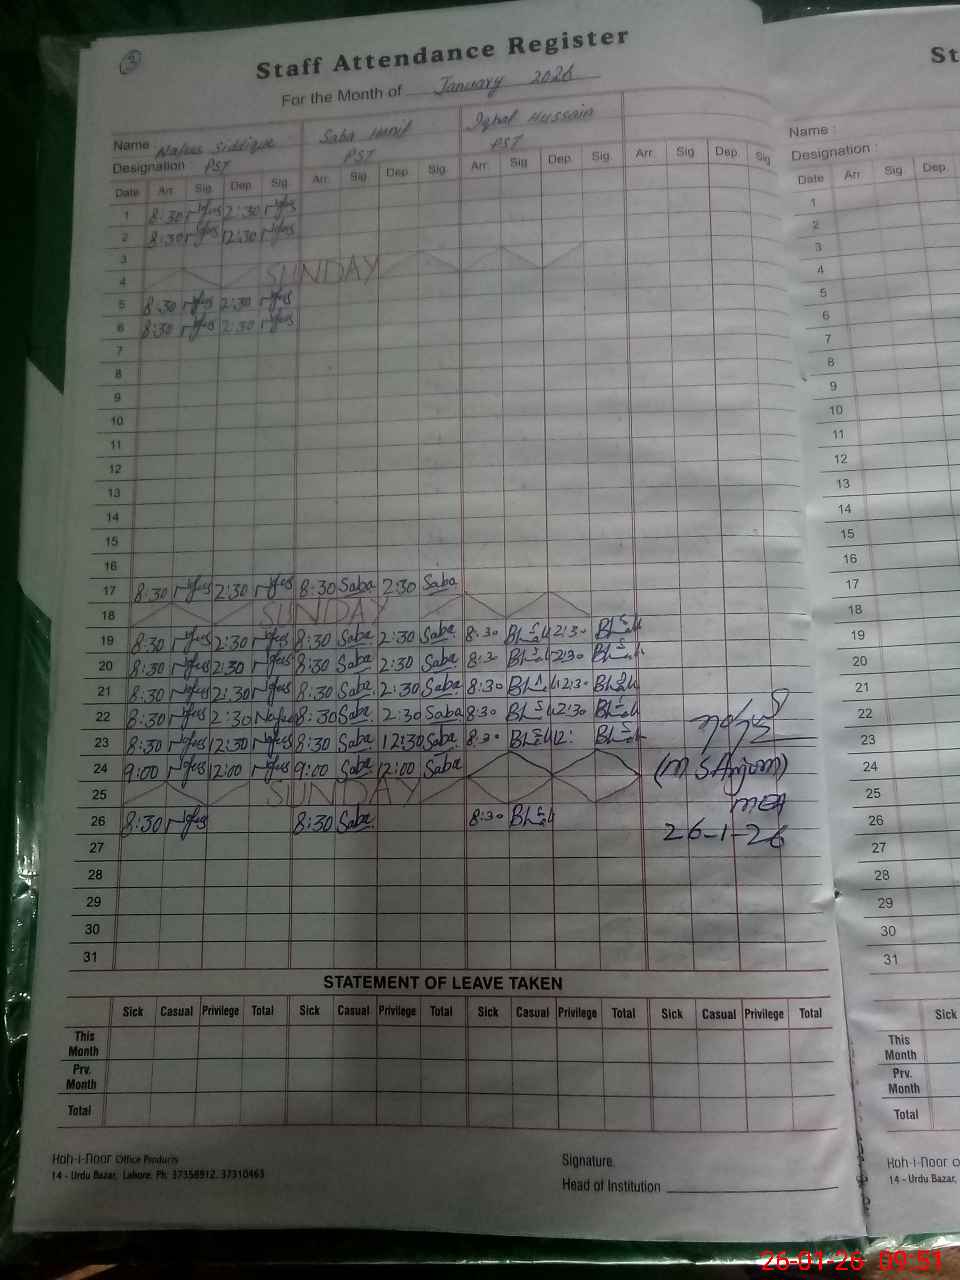 3
Staff Attendance Register
For the Month of January 2026
Name Nafees Siddique Saba Hanif Iqbal Hussain
Designation PST PST PST
Date Arr. Sig. Dep. Sig. Arr. Sig. Dep. Sig. Arr. Sig. Dep. Sig. Arr. Sig. Dep. Sig.
1 8:30 Nafees 2:30 Nafees
2 8:30 Nafees 12:30 Nafees
3
4 SUNDAY
5 8:30 Nafees 2:30 Nafees
6 8:30 Nafees 2:30 Nafees
7
8
9
10
11
12
13
14
15
16
17 8:30 Nafees 2:30 Nafees 8:30 Saba 2:30 Saba
18 SUNDAY
19 8:30 Nafees 2:30 Nafees 8:30 Saba 2:30 Saba 8:30 2:30
20 8:30 Nafees 2:30 Nafees 8:30 Saba 2:30 Saba 8:30 2:30
21 8:30 Nafees 2:30 Nafees 8:30 Saba 2:30 Saba 8:30 2:30
22 8:30 Nafees 2:30 Nafees 8:30 Saba 2:30 Saba 8:30 2:30
23 8:30 Nafees 12:30 Nafees 8:30 Saba 12:30 Saba 8:30 12:
24 9:00 Nafees 12:00 Nafees 9:00 Saba 12:00 Saba (M S Anjum)
25 SUNDAY MEA
26 8:30 Nafees 8:30 Saba 8:30 26-1-26
27
28
29
30
31
STATEMENT OF LEAVE TAKEN
Sick Casual Privilege Total Sick Casual Privilege Total Sick Casual Privilege Total Sick Casual Privilege Total
This Month
Prv. Month
Total
Koh-i-Noor Office Products
14 - Urdu Bazar, Lahore. Ph: 37358912, 37310463
Signature
Head of Institution
St
Name :
Designation :
Date Arr. Sig. Dep.
1
2
3
4
5
6
7
8
9
10
11
12
13
14
15
16
17
18
19
20
21
22
23
24
25
26
27
28
29
30
31
Sick
This Month
Prv. Month
Total
Koh-i-Noor O
14 - Urdu Bazar,
26-01-26 09:51